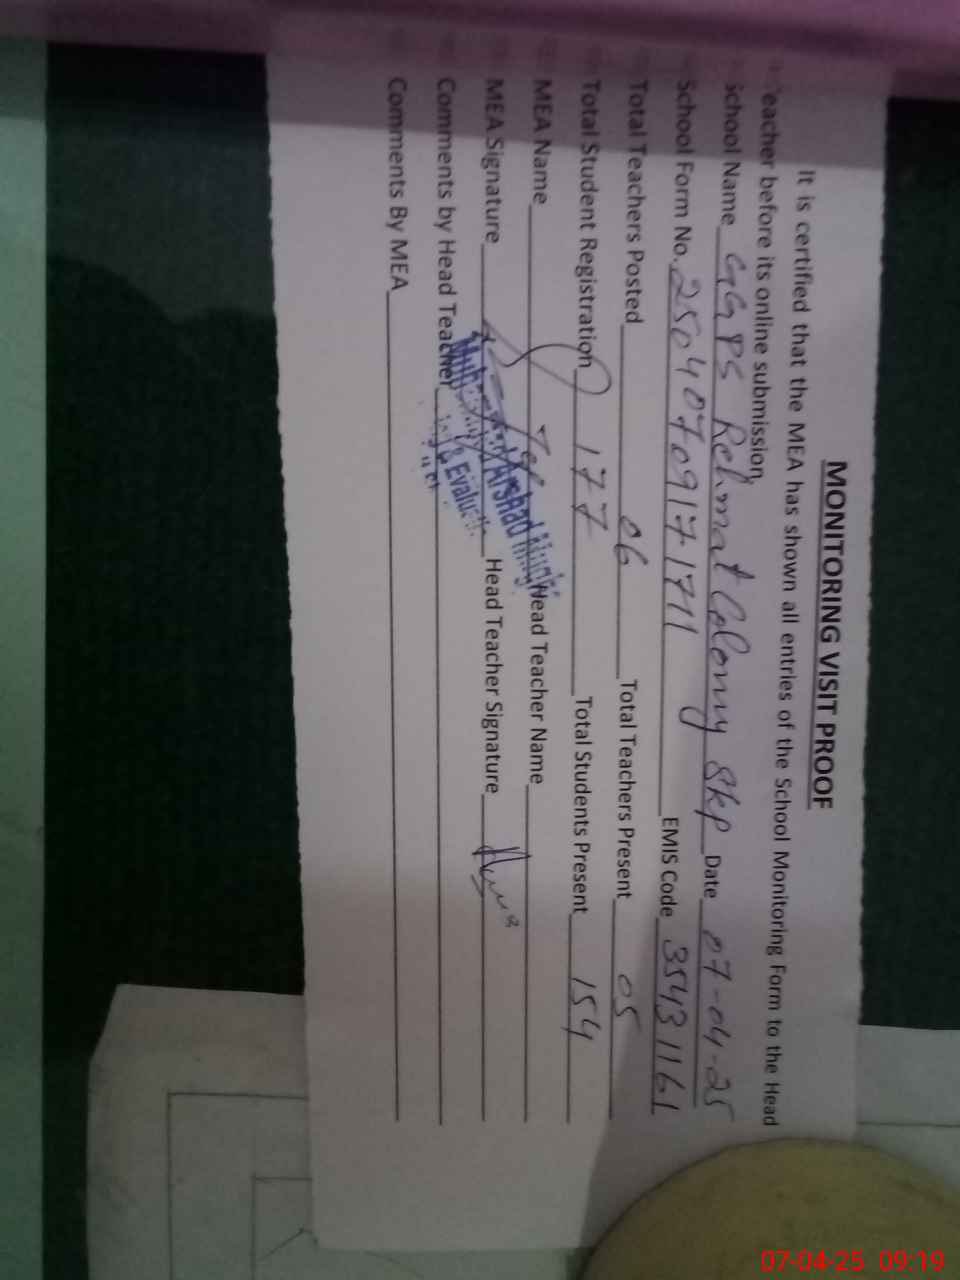 MONITORING VISIT PROOF
It is certified that the MEA has shown all entries of the School Monitoring Form to the Head
Teacher before its online submission.
School Name GGPS Rehmat Colony Skp Date 07-04-25
School Form No. 2504070917-1711 EMIS Code 35431161
Total Teachers Posted 06 Total Teachers Present 05
Total Student Registration 177 Total Students Present 154
MEA Name Head Teacher Name
MEA Signature Head Teacher Signature
Arshad
Comments by Head Teacher
& Evalu
Comments By MEA
07-04-25 09:19